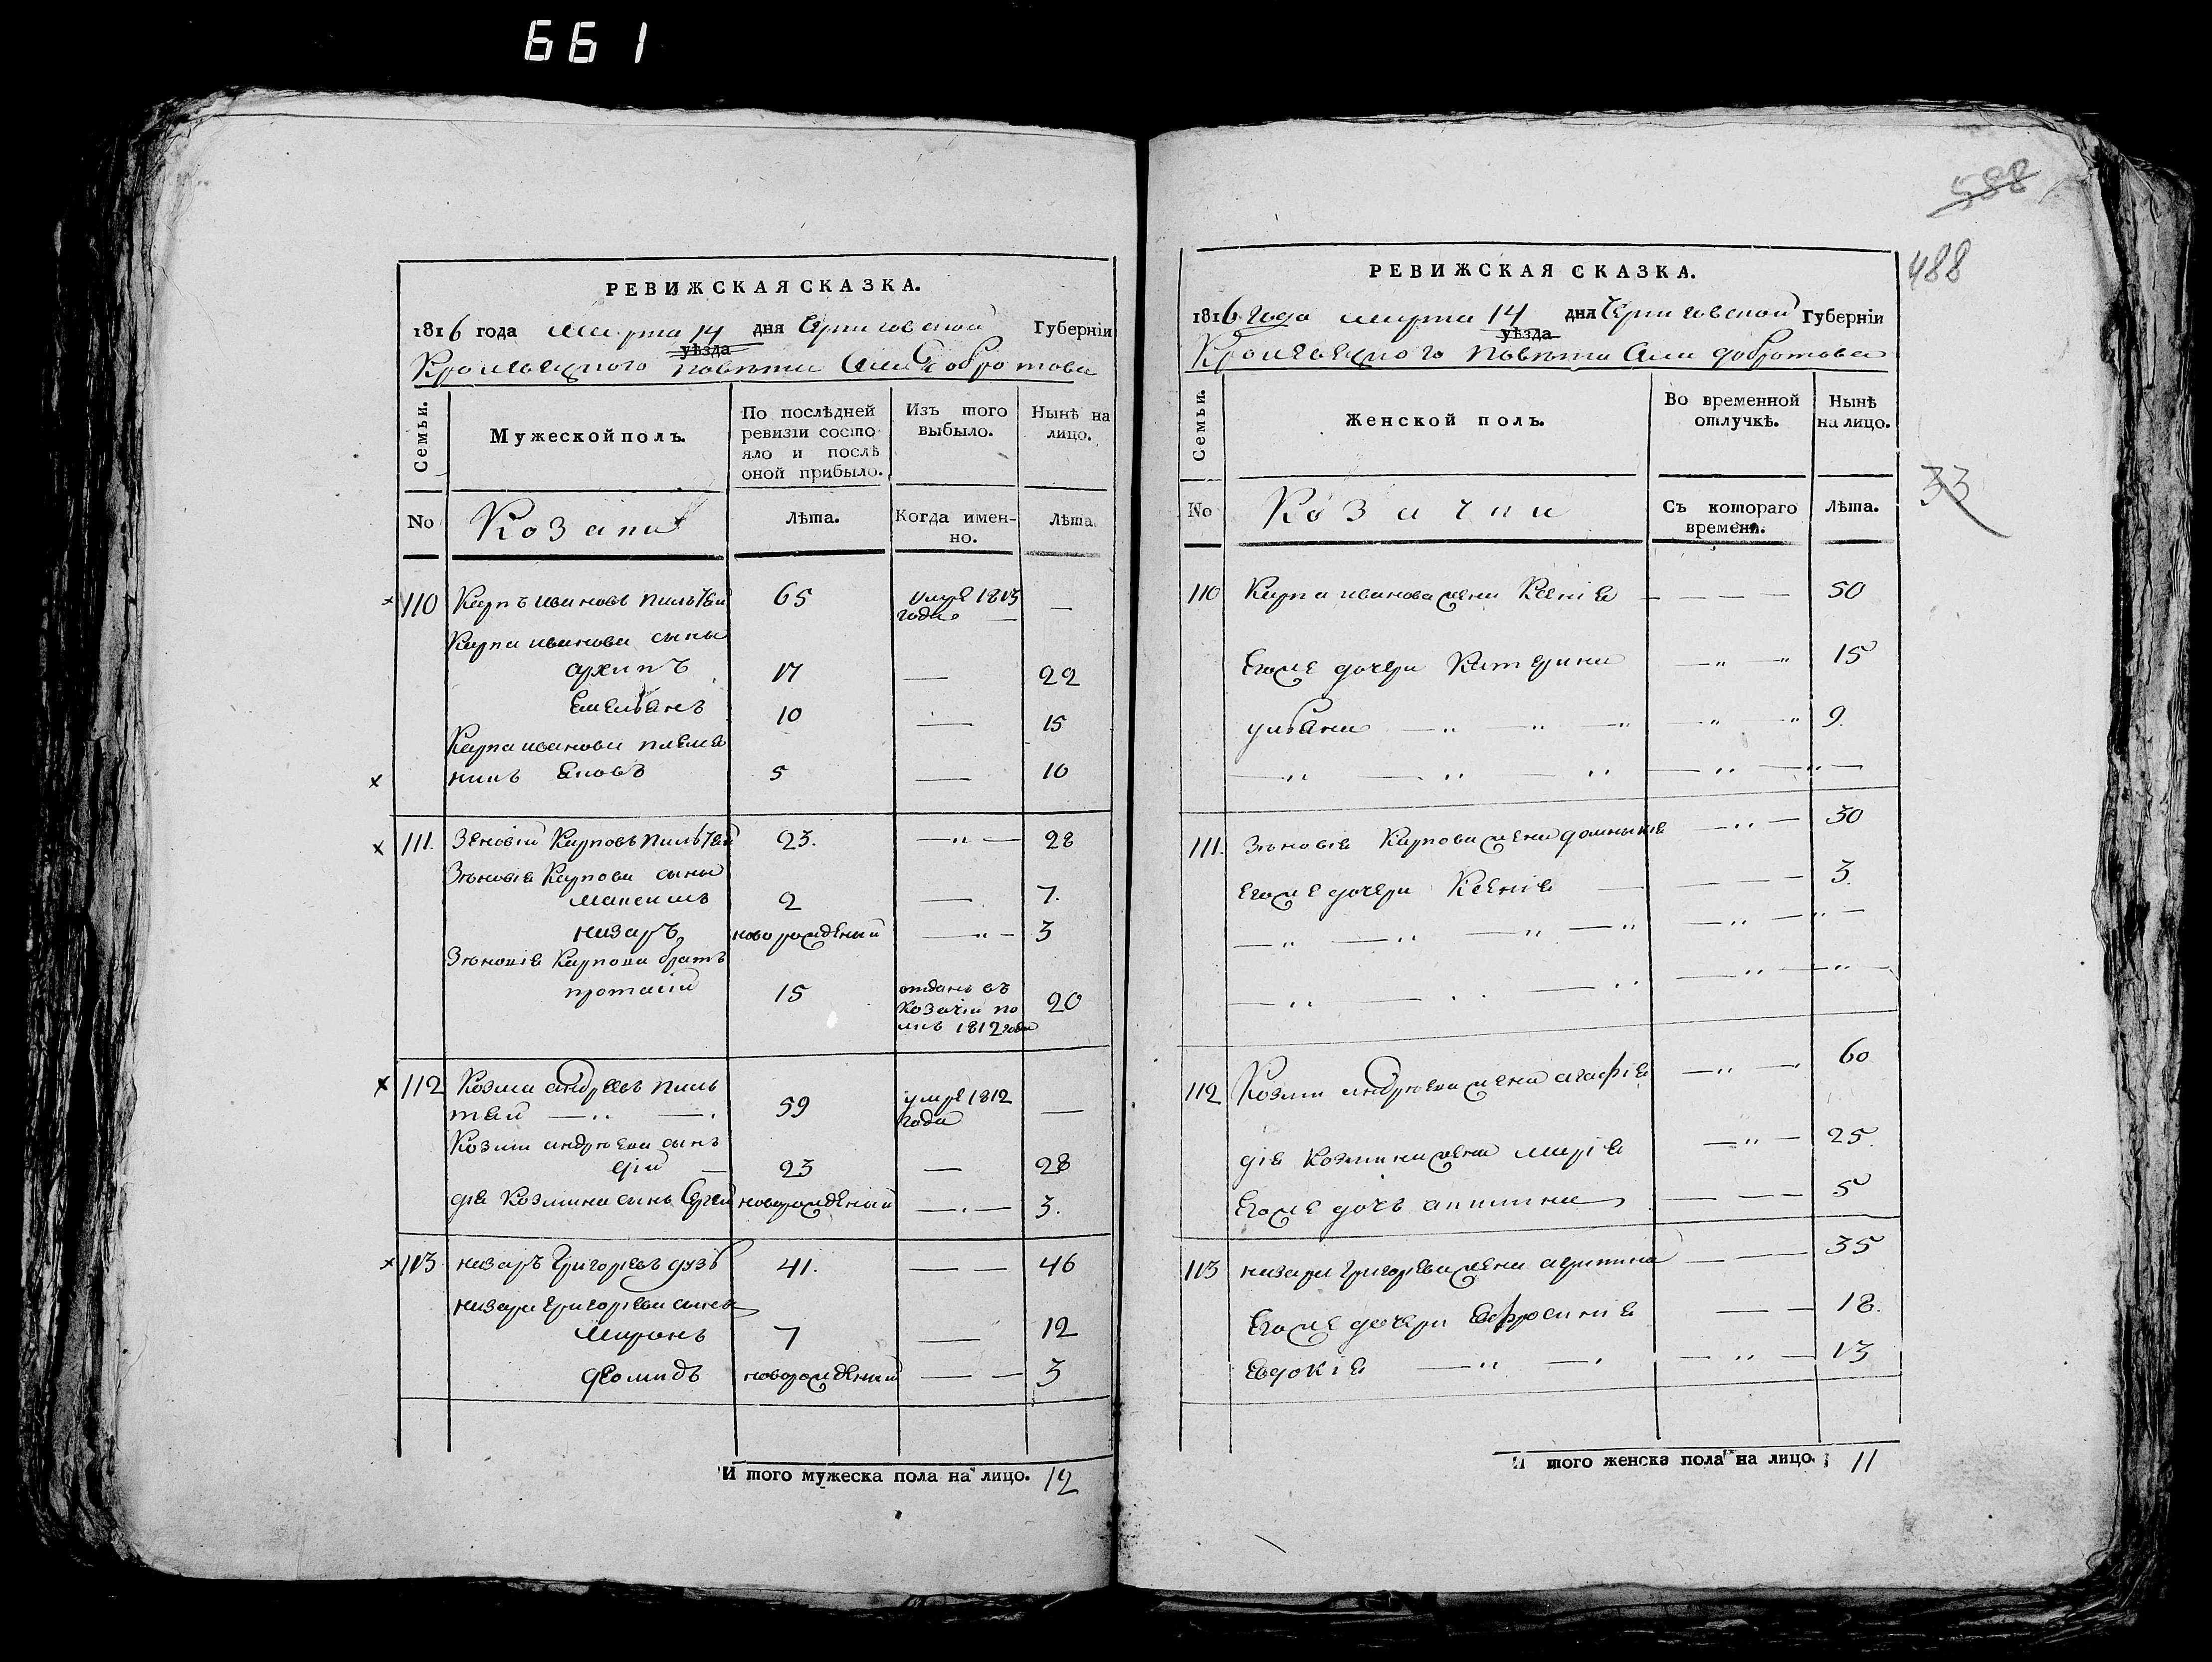 661
РЕВИЖСКАЯ СКАЗКА.
1816 года марта 14 дня Черниговской Губерніи
уѣзда
Кролевецкого повѣта Села Добротова
Семьи.
Мужеской полъ.
По послѣдней
ревизіи состо-
яло и послѣ
оной прибыло.
Изъ того
выбыло.
Нынѣ на
лицо.
No
Козаки
Лѣта.
Когда имен-
но.
Лѣта.
110 Карпъ ивановъ 65 умре 1813 —
года
Карпа иванова сыны
архипъ 17 — 22
Емельянъ 10 — 15
Карпа иванова племя
никъ яковъ 5 — 10
111. Зеновій Карповъ 23. — 28
Зѣновія Карпова сыны
максимъ 2 — 7.
назаръ новорожденый — 3
Зѣновія Карпова братъ
протасій 15 отданъ въ
козачій по 20
лкъ 1812 года
112 Козма андреевъ пиль
тяй 59 умре 1812 —
года
Козми андрѣева сынъ
23 — 28
Козмина сынъ Сергей новорожденый — 3.
113 назаръ Григорьевъ дузь 41. — 46
назара Григорьева сыны
миронъ 7 — 12
деомидъ новорожденый — 3
И того мужеска пола на лицо. 12
588
488
РЕВИЖСКАЯ СКАЗКА.
1816 года марта 14 дня Черниговской Губерніи
уѣзда
Кролевецкого повѣта Села добротова
Семьи.
Женской полъ.
Во временной
отлучкѣ.
Нынѣ
на лицо.
33
No
Козачки
Съ котораго
времени.
Лѣта.
110 Карпа иванова жена Ксенія — 50
Егоже дочери Катерина — 15
ульяна — 9.
111. Зѣновія Карпова жена домникія — 30
Егоже дочери Ксенія — 3.
112 Козми андрѣева жена агафія — 60
Козмина жена марія — 25.
Егоже дочь акилина — 5
113 назара Григорьева жена — 35
Егоже дочери Ефросинія — 18.
Евдокія — 13
И того женска пола на лицо. 11